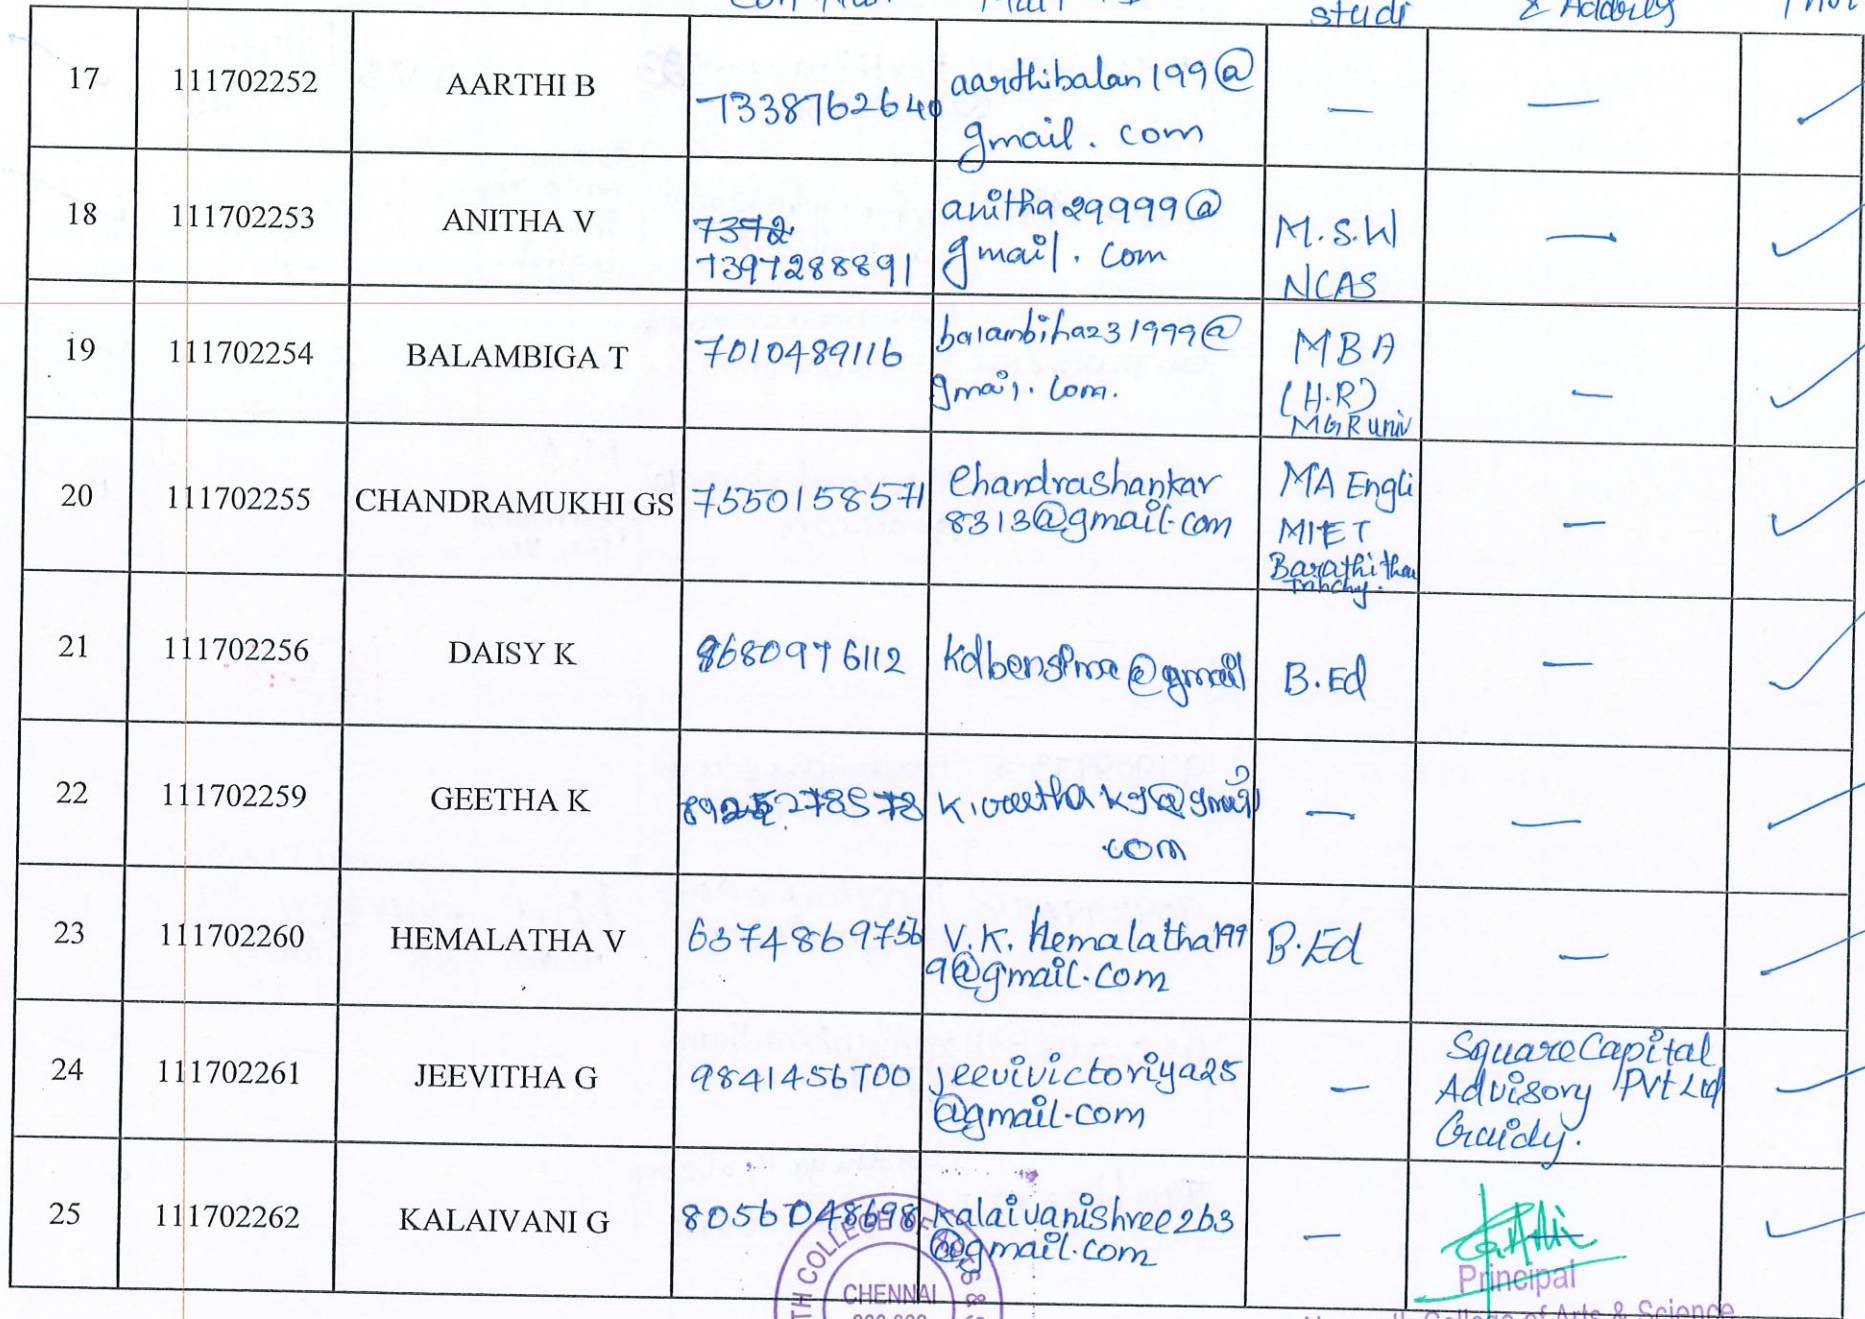 studi
& Address
17 111702252 AARTHI B 7338762640 aarthibalan199@
gmail.com — —
18 111702253 ANITHA V 7372
7397288891 anitha29999@
gmail.com M.S.W
NCAS —
19 111702254 BALAMBIGA T 7010489116 MBA
(H.R)
MGR univ —
20 111702255 CHANDRAMUKHI GS 7550158571 Chandrashankar
8313@gmail.com MA Engli
MIET
Barathithan
—
21 111702256 DAISY K 8680976112 @gmail B.Ed —
22 111702259 GEETHA K
com — —
23 111702260 HEMALATHA V 6374869756 V.K.Hemalatha199
9@gmail.com B.Ed —
24 111702261 JEEVITHA G 9841456700 jeevivictoriya25
@gmail.com — Square Capital
Advisory Pvt Ltd
25 111702262 KALAIVANI G 8056048698 kalaivanishree263
@gmail.com —
TH COLLEGE OF ARTS &
CHENNAI
Principal
College of Arts & Science